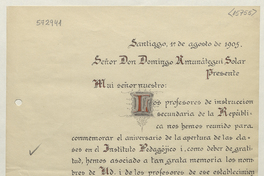 592941
(15755)
Santiago, 1º de agosto de 1905.
Señor Don Domingo Amunátegui Solar
Presente
Mui señor nuestro:
Los profesores de instruccion
secundaria de la Repúbli-
ca nos hemos reunido para
conmemorar el aniversario de la apertura de las cla-
ses en el Instituto Pedagójico i, como deber de grati-
tud, hemos asociado a tan grata memoria los nom-
bres de Ud. i de los profesores de ese establecimien